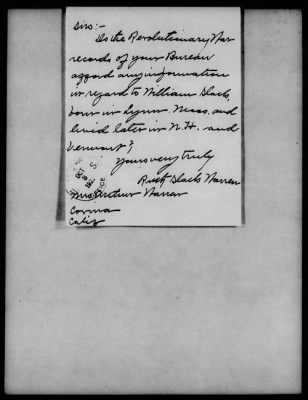 Sirs:-
Do the Revolutionary War
records of your Bureau
afford any information
in regard to William Slack,
born in Lynn Mass. and
lived later in N.H. and
Vermont?
Yours very truly
Ruth Slack Warren
Mrs Arthur Warren
Calif